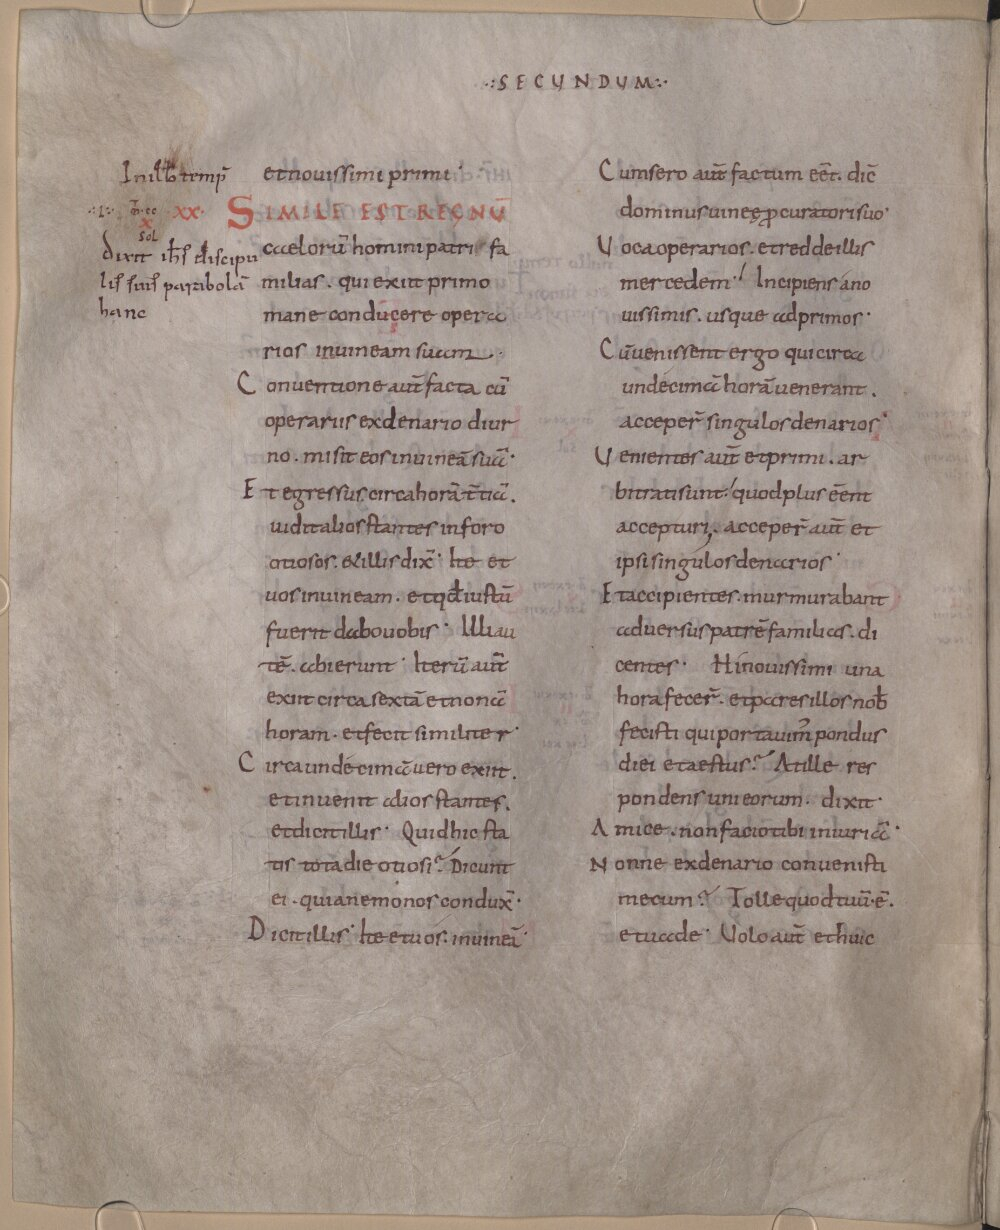 ·:SECUNDUM:·
In illo temp̄
·:I:· m̄ cc XX·
X
Sol
dixit ih̅s discipu
lis suis parabolā
hanc
et novissimi primi
SIMILE EST REGNŪ
caelorū homini patri fa
milias. qui exiit primo
mane conducere opera
rios in vineam suam·
Conventione aut̄ facta cū
operariis ex denario diur
no. misit eos in vineā suā·
Et egressus circa horā t̄tiā.
vidit alios stantes in foro
otiosos. & illis dix̄· Ite et
vos in vineam. et qd̄ iustū
fuerit dabo vobis· Illi au
tē. abierunt· Iterū aut̄
exiit circa sextā et nonā
horam. et fecit similiter·
Circa undecimā vero exiit.
et invenit alios stantes.
et dicit illis· Quid hic sta
tis tota die otiosi? Dicunt
ei. quia nemo nos condux̄·
Dicit illis· Ite et vos. in vineā·
Cum sero aut̄ factum eēt. dic̄
dominus vineę procuratori suo·
Voca operarios. et redde illis
mercedem· Incipiens a no
vissimis. usque ad primos·
Cū venissent ergo qui circa
undecimā horā venerant.
acceper̄ singulos denarios·
Venientes aut̄ et primi. ar
bitrati sunt· quod plus eēnt
accepturi. acceper̄ aut̄ et
ipsi singulos denarios·
Et accipientes. murmurabant
adversus patrē familias. di
centes· Hi novissimi una
hora fecer̄. et pares illos nob̄
fecisti qui portavim̄ pondus
diei et aestus? At ille res
pondens uni eorum. dixit·
Amice. non facio tibi iniuriā·
Nonne ex denario convenisti
mecum? Tolle quod tuū ē.
et vade· Volo aut̄ et huic